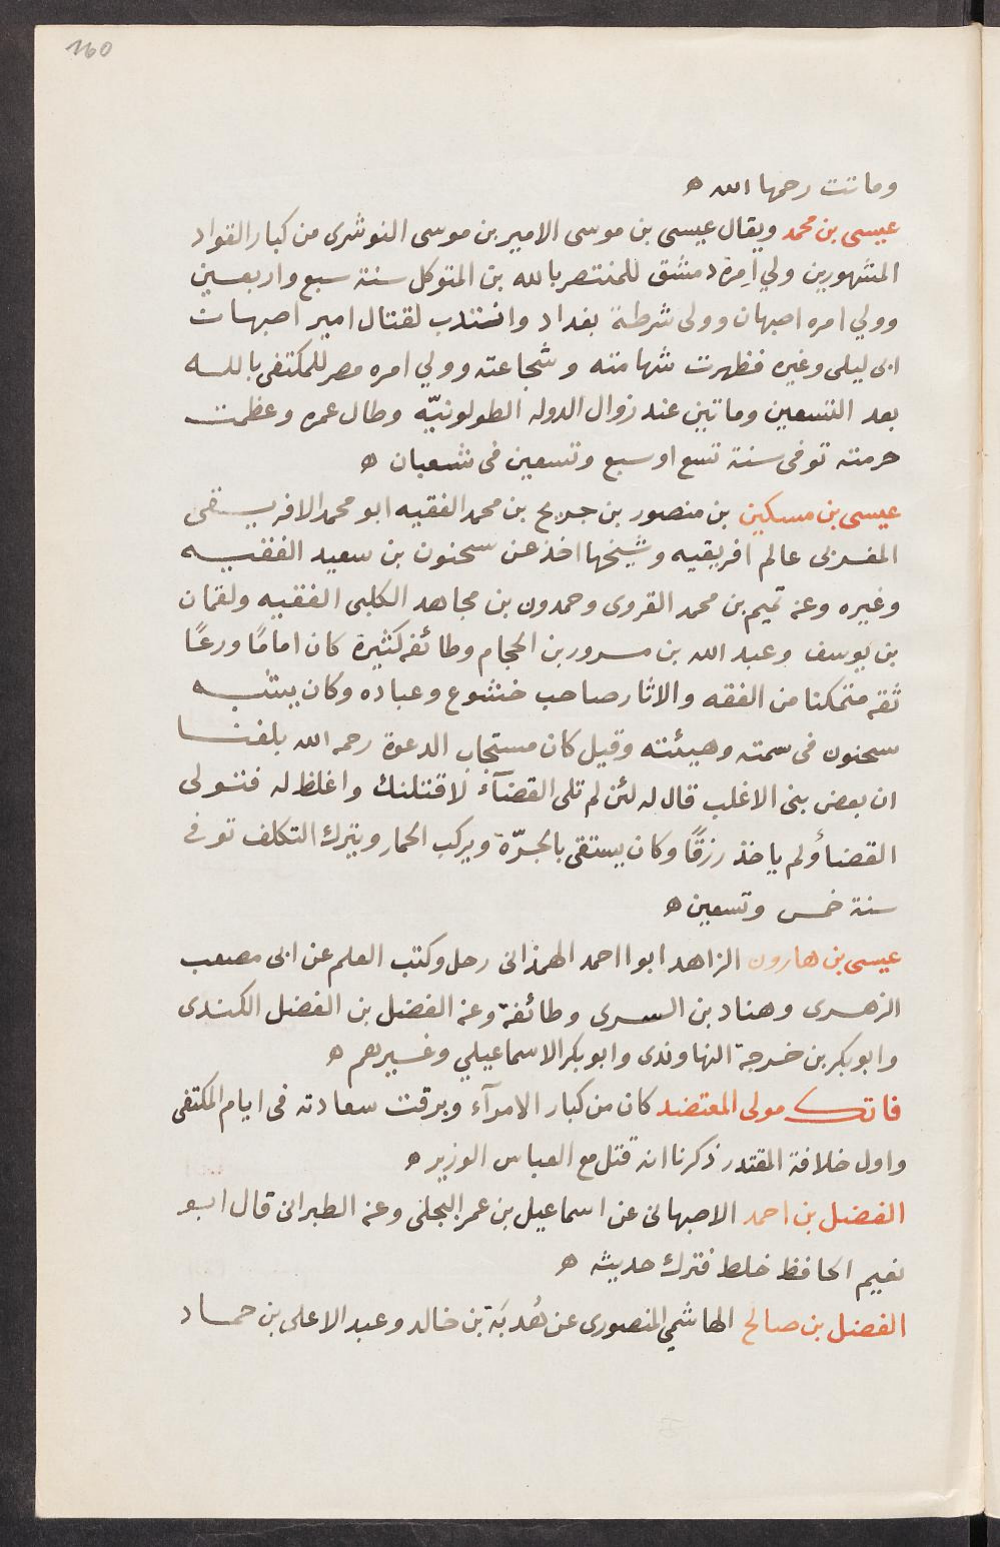 160
وماتت رحمها الله ه
عيسى بن محمد ويقال عيسى بن موسى الامير بن موسى النوشرى من كبار القواد
المشهورين ولي اِمرة دمشق للمنتصر بالله بن المتوكل سنة سبع واربعين
وولي امره اصبهان وولى شرطة بغداد وانتدب لقتال امير اصبهان
ابى ليلى وغيره فظهرت شهامته وشجاعته وولي امره مصر للمكتفى بالله
بعد التسعين وماتين عند زوال الدوله الطولونيّه وطال عمره وعظمت
حرمته توفى سنة تسع او سبع وتسعين فى شعبان ه
عيسى بن مسكين بن منصور بن جريج بن محمد الفقيه ابو محمد الافريقى
المغربى عالم افريقيه وشيخها اخذ عن سحنون بن سعيد الفقيه
وغيره وعنه تميم بن محمد القروى وحمدون بن مجاهد الكلبى الفقيه ولقمان
بن يوسف وعبد الله بن مسرور بن الحجام وطائفه كثيرة كان امامًا ورعًا
ثقه متمكنا من الفقه والاثار صاحب خشوع وعباده وكان يشبه
سحنون فى سمته وهيئته وقيل كان مستجاب الدعوة رحمه الله بلغنا
ان بعض بنى الاغلب قال له لئن لم تلى القضآء لاقتلنك واغلظ له فتولى
القضاً ولم ياخذ رزقًا وكان يستقى بالجرّة ويركب الحمار ويترك التكلف توفي
سنة خمس وتسعين ه
عيسى بن هارون الزاهد ابو احمد الهمذانى رحل وكتب العلم عن ابى مصعب
الزهرى وهناد بن السرى وطائفة وعنه الفضل بن الفضل الكندى
وابو بكر بن خرجة النهاوندى وابو بكر الاسماعيلي وغيرهم ه
فاتك مولى المعتضد كان من كبار الامرآء وبرقت سعادته فى ايام المكتفى
واول خلافة المقتدر ذكرنا انه قتل مع العباس الوزير ه
الفضل بن احمد الاصبهانى عن اسماعيل بن عمر البجلى وعنه الطبرانى قال ابو
نعيم الحافظ خلط فترك حديثه ه
الفضل بن صالح الهاشمي المنصورى عن هُدبَة بن خالد وعبد الاعلى بن حماد